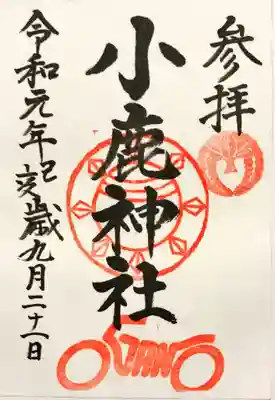 参拝
小鹿神社
令和元年己亥歳九月二十一日